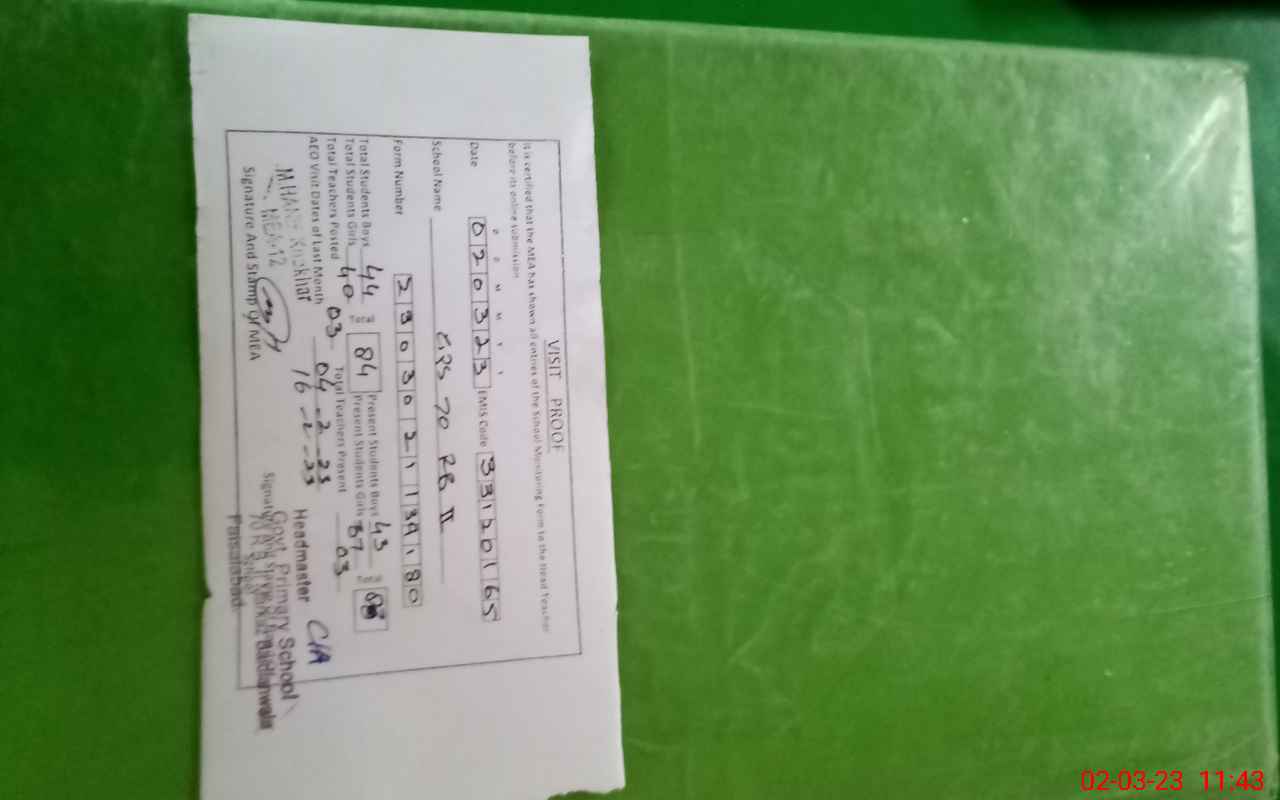 VISIT PROOF
It is certified that the MEA has shown all entries of the School Monitoring Form to the Head Teacher
before its online submission
D D M M Y Y
Date 020323 EMIS Code 33120165
School Name 70 RB II
Form Number
Total Students Boys 44 84 Present Students Boys 43
Total Students Girls 40 Present Students Girls 37
Total Teachers Posted 03 Total Teachers Present 03
AEO Visit Dates of Last Month 04-2-23
16-2-23
MEA-12
Signature And Stamp of MEA
Headmaster
Govt. Primary School
Faisalabad
02-03-23 11:43